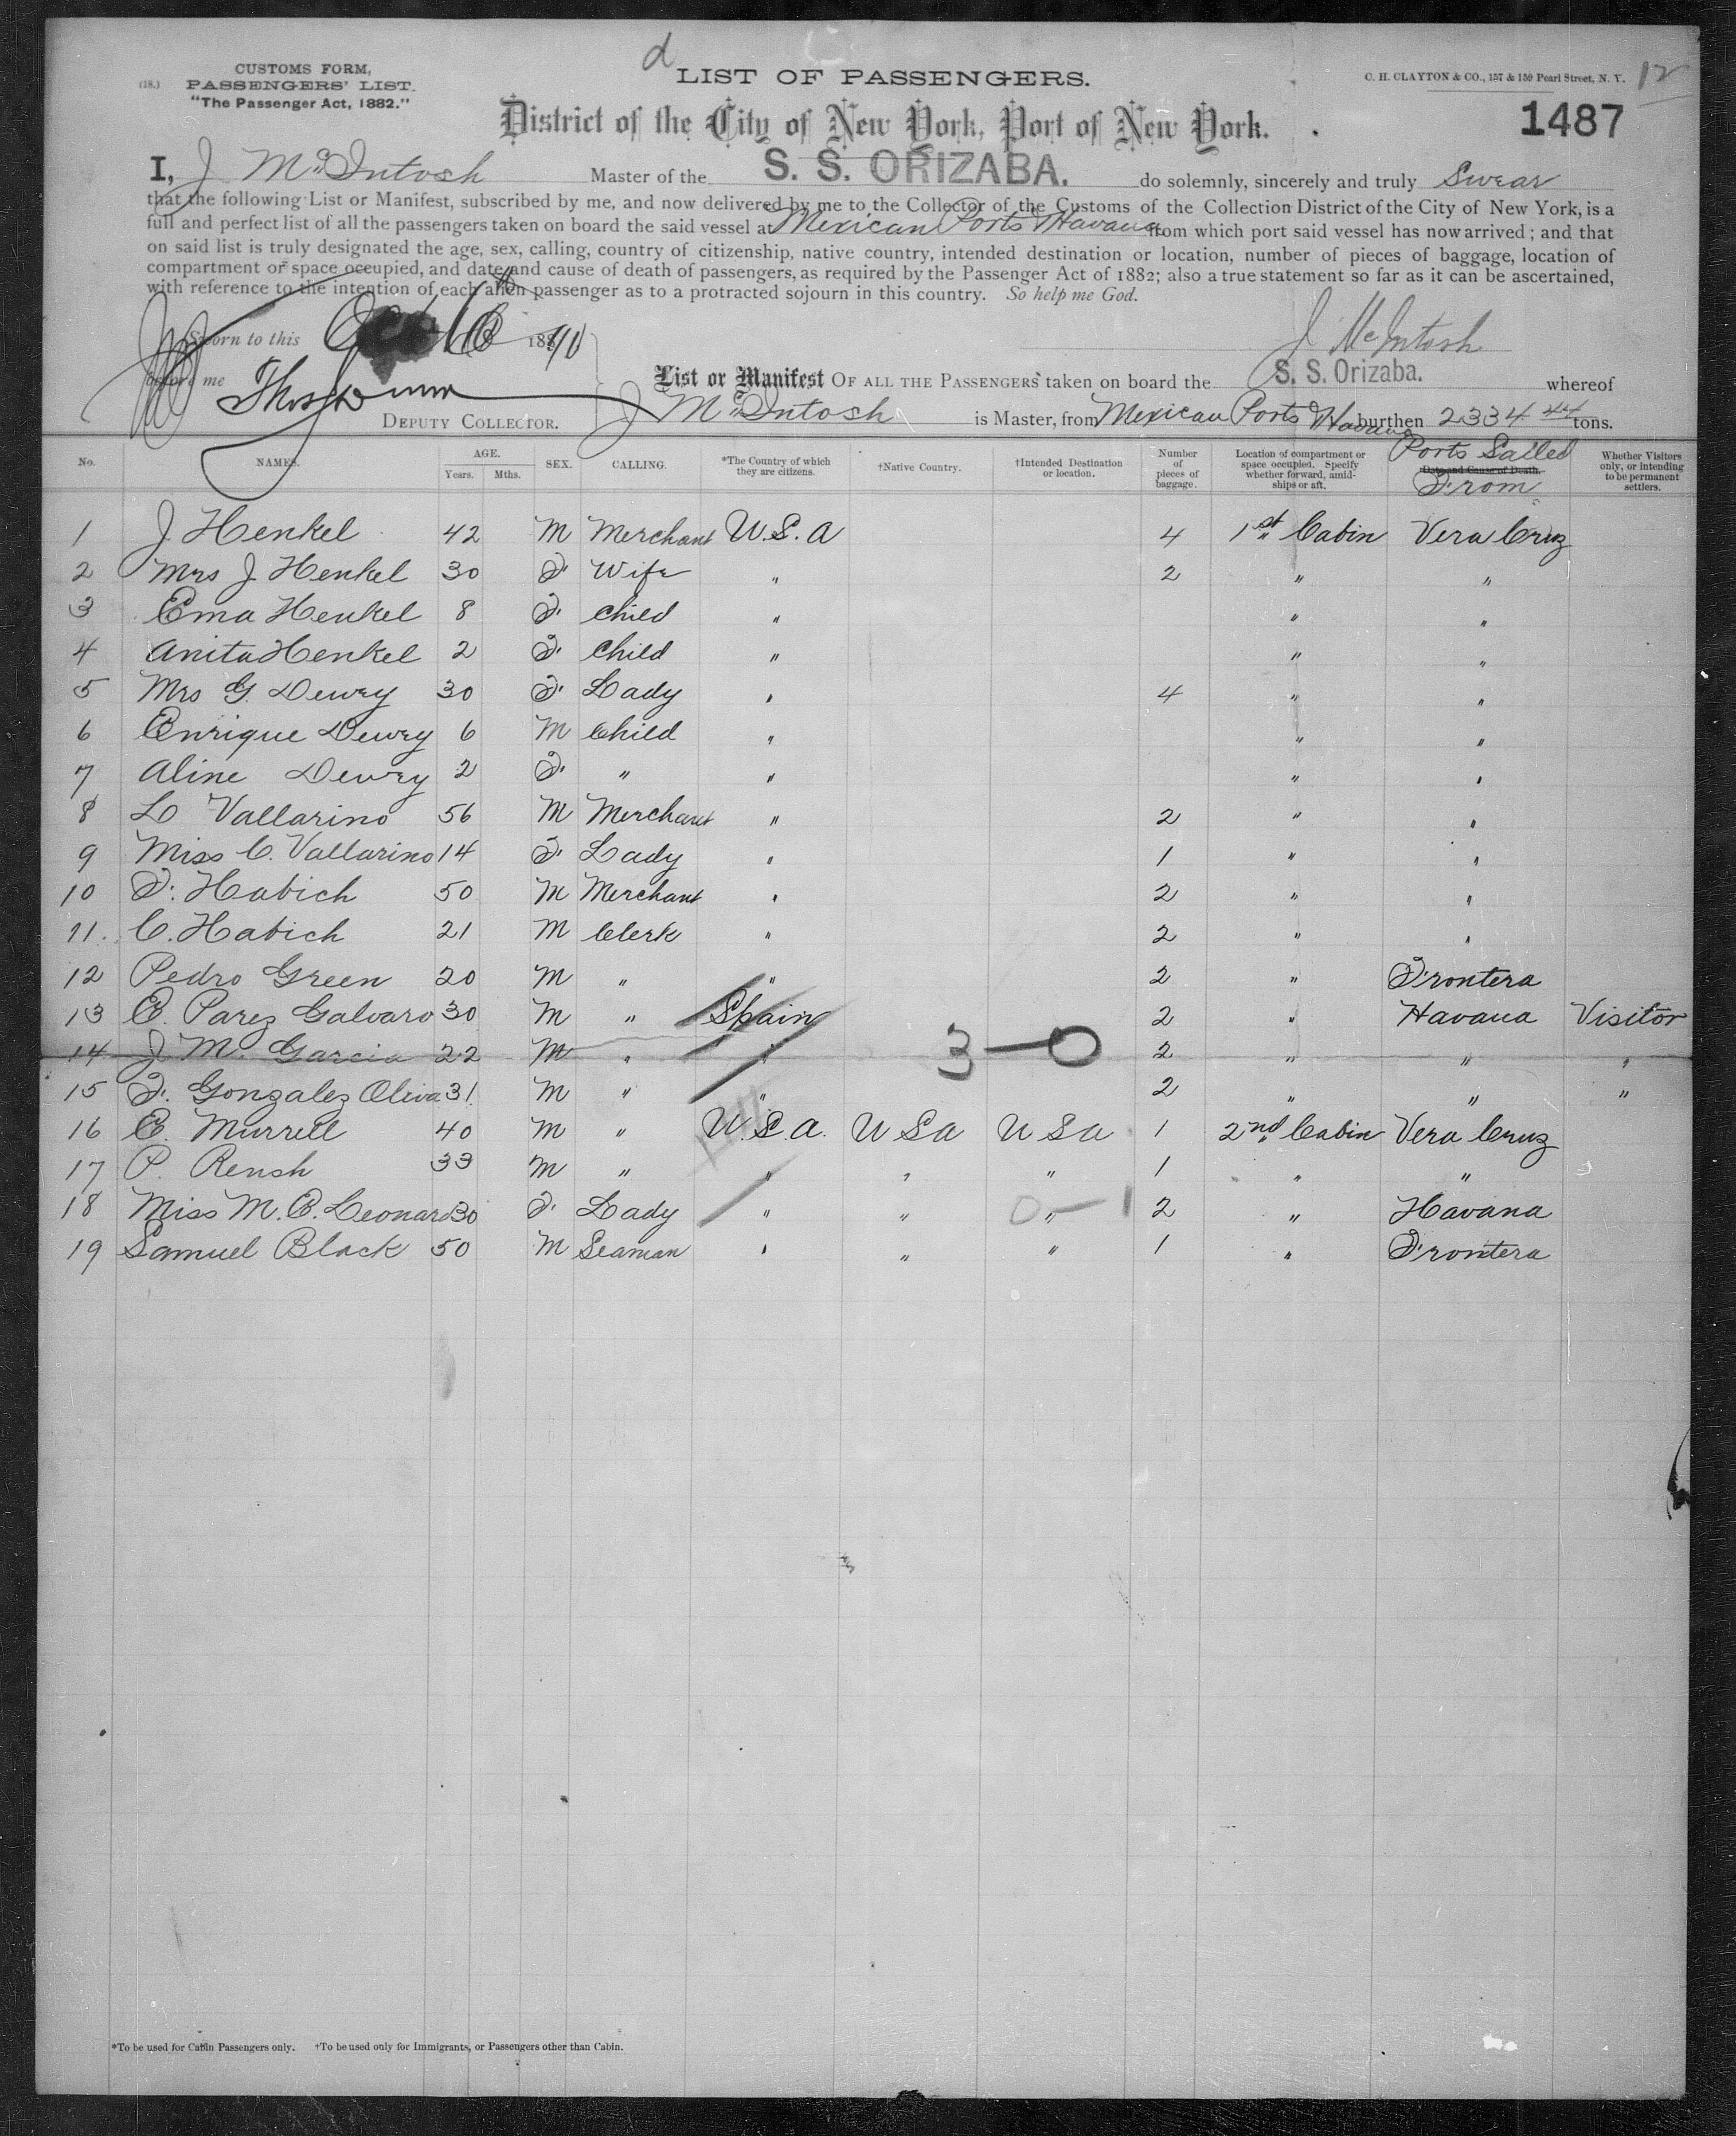 d
12
CUSTOMS FORM,
(18.) PASSENGERS' LIST.
"The Passenger Act, 1882."
LIST OF PASSENGERS.
C. H. CLAYTON & CO., 157 & 159 Pearl Street, N. Y.
District of the City of New York, Port of New York.
1487
I, J McIntosh Master of the S. S. ORIZABA. do solemnly, sincerely and truly Swear
that the following List or Manifest, subscribed by me, and now delivered by me to the Collector of the Customs of the Collection District of the City of New York, is a
full and perfect list of all the passengers taken on board the said vessel at Mexican Ports & Havana from which port said vessel has now arrived; and that
on said list is truly designated the age, sex, calling, country of citizenship, native country, intended destination or location, number of pieces of baggage, location of
compartment or space occupied, and date and cause of death of passengers, as required by the Passenger Act of 1882; also a true statement so far as it can be ascertained,
with reference to the intention of each alien passenger as to a protracted sojourn in this country. So help me God.
Sworn to this Oct 16th 1890
J McIntosh
before me
List or Manifest OF ALL THE PASSENGERS taken on board the S. S. Orizaba. whereof
DEPUTY COLLECTOR.
J McIntosh is Master, from Mexican Ports & Havana burthen 2334 44 tons.
No. NAMES. AGE. Years. Mths. SEX. CALLING. *The Country of which they are citizens. †Native Country. †Intended Destination or location. Number of pieces of baggage. Location of compartment or space occupied. Specify whether forward, amidships or aft. Date and Cause of Death. Ports Sailed From Whether Visitors only, or intending to be permanent settlers.
1 J Henkel 42 M Merchant U.S.A 4 1st Cabin Vera Cruz
2 Mrs J Henkel 30 F. Wife " 2 " "
3 Ema Henkel 8 F. Child " " "
4 Anita Henkel 2 F. Child " " "
5 Mrs G. Dewey 30 F. Lady " 4 " "
6 Enrique Dewey 6 M Child " " "
7 Aline Dewey 2 F. " " " "
8 L Vallarino 56 M Merchant " 2 " "
9 Miss C. Vallarino 14 F. Lady " 1 " "
10 F. Habich 50 M Merchant " 2 " "
11. C. Habich 21 M Clerk " 2 " "
12 Pedro Green 20 M " " 2 " Frontera
13 E. Parez Galvaro 30 M " Spain 2 " Havana Visitor
14 J M. Garcia 22 M " " 3—0 2 " " "
15 F. Gonzalez Oliva 31 M " " 2 " " "
16 E. Murrell 40 M " U.S.A. U S A U S A 1 2nd Cabin Vera Cruz
17 P. Rensh 33 M " " " " 1 " "
18 Miss M. E. Leonard 30 F. Lady " " " 0—1 2 " Havana
19 Samuel Black 50 M Seaman " " " 1 " Frontera
*To be used for Cabin Passengers only. †To be used only for Immigrants, or Passengers other than Cabin.